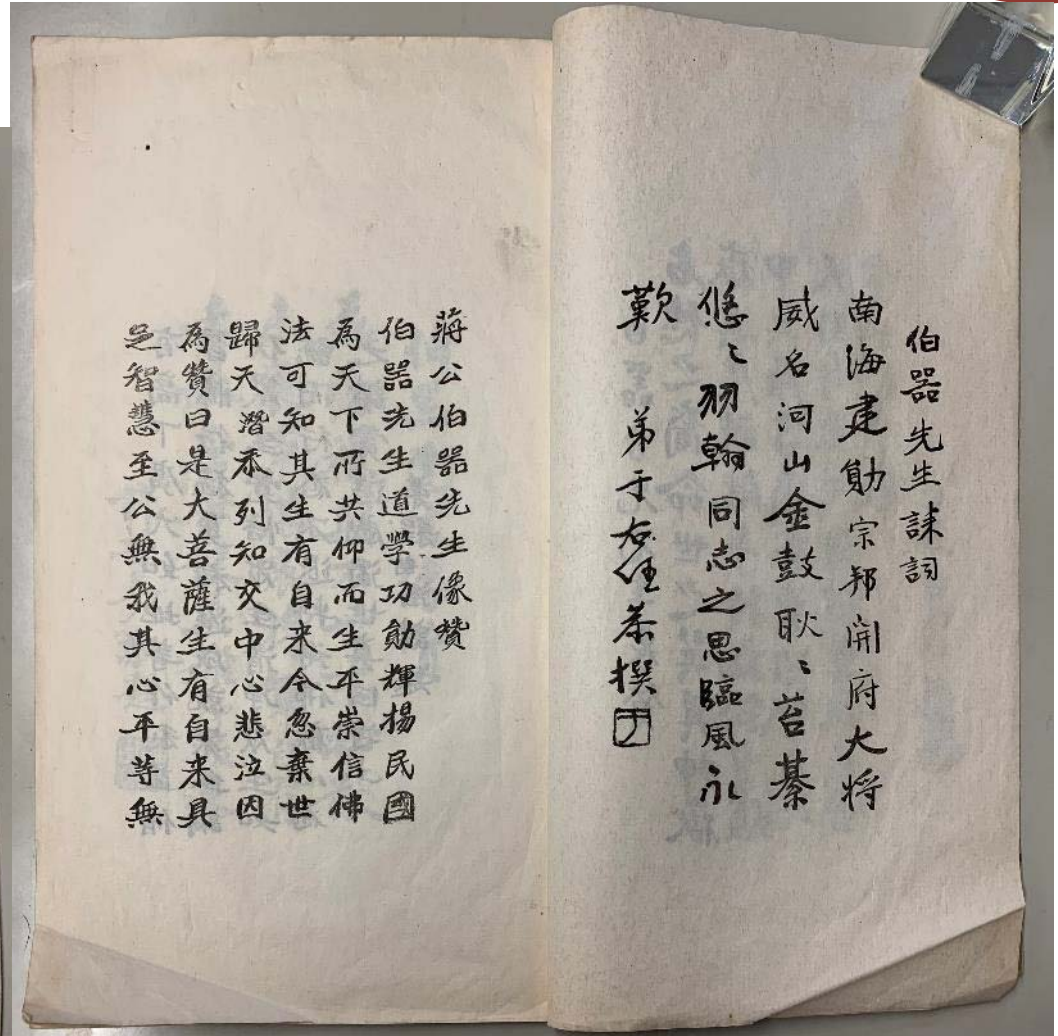 伯器先生誄詞
南海建勛宗邦開府大將
威名河山金鼓耿〻苔綦
悠〻羽翰同志之思臨風永
歎　弟于右任恭撰
蔣公伯器先生像贊
伯器先生道學功勛輝揚民國
為天下所共仰而生平崇信佛
法可知其生有自来今忽棄世
歸天潛忝列知交中心悲泣因
為贊曰是大菩薩生有自来具
足智慧至公無我其心平等無